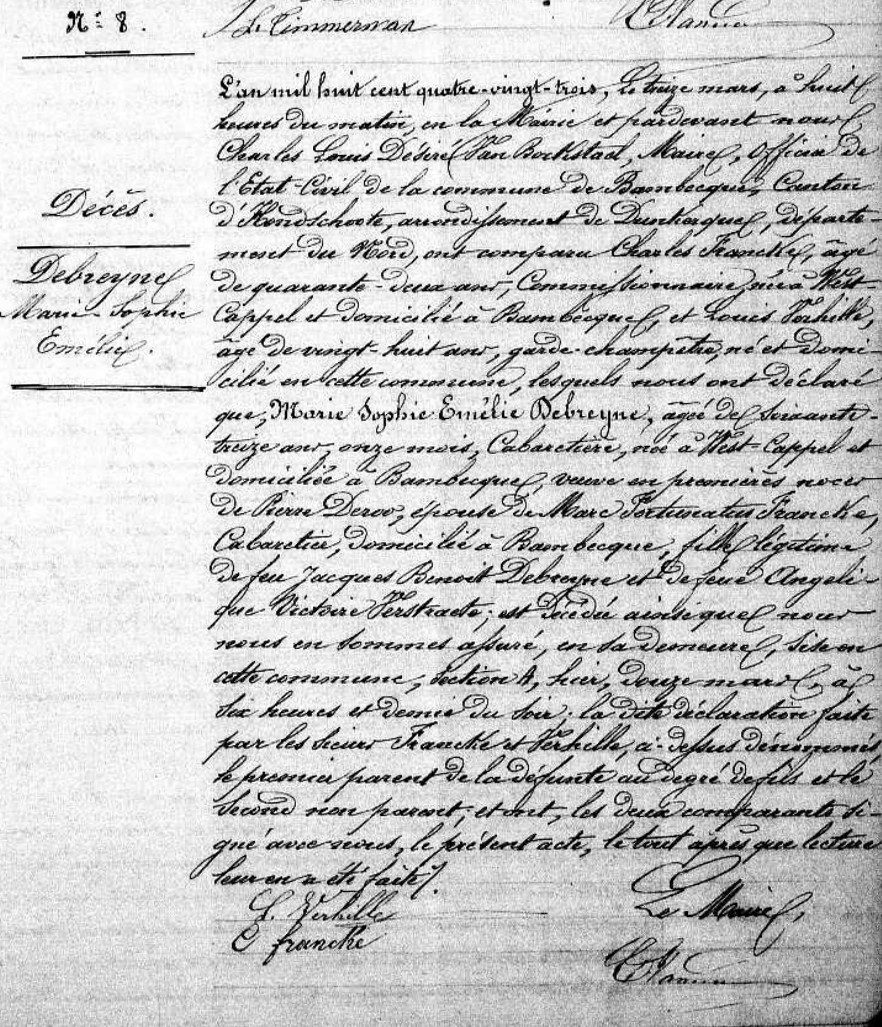 N° 8.
L. Timmerman
Décès.
Debreyne
Marie Sophie
Emélie.
L'an mil huit cent quatre-vingt-trois, le treize mars, à huit
heures du matin, en la Mairie et pardevant nous
Charles Louis Désiré Van Bockstael, Maire, Officier de
l'Etat-Civil de la commune de Bambecque, Canton
d'Hondschoote, arrondissement de Dunkerque, départe-
ment du Nord, ont comparu Charles Francke, âgé
de quarante-deux ans, Commissionnaire, né à West-
Cappel et domicilié à Bambecque, et Louis Verhille,
âgé de vingt-huit ans, garde-champêtre, né et domi-
cilié en cette commune, lesquels nous ont déclaré
que, Marie Sophie Emélie Debreyne, âgée de soixante-
treize ans, onze mois, Cabaretière, née à West-Cappel et
domiciliée à Bambecque, veuve en premières noces
de Pierre Deroo, épouse de Marc Fortunatus Francke,
Cabaretier, domicilié à Bambecque, fille légitime
de feu Jacques Benoit Debreyne et de feue Angéli-
que Victoire Verstraete; est décédée ainsi que nous
nous en sommes assuré, en sa demeure, sise en
cette commune, section A, hier, douze mars, à
six heures et demie du soir; la dite déclaration faite
par les sieurs Francke et Verhille, ci-dessus dénommés,
le premier parent de la défunte au degré de fils et le
second non parent; et ont, les deux comparants si-
gné avec nous, le présent acte, le tout après que lecture
leur en a été faite.
L. Verhille
C francke
Le Maire,